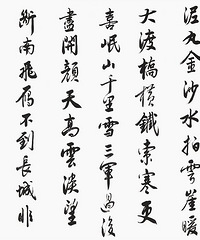 泥丸金沙水拍雲崖暖
大渡橋橫鐵索寒更
喜岷山千里雪三軍過後
盡開顏天高雲淡望
斷南飛雁不到長城非